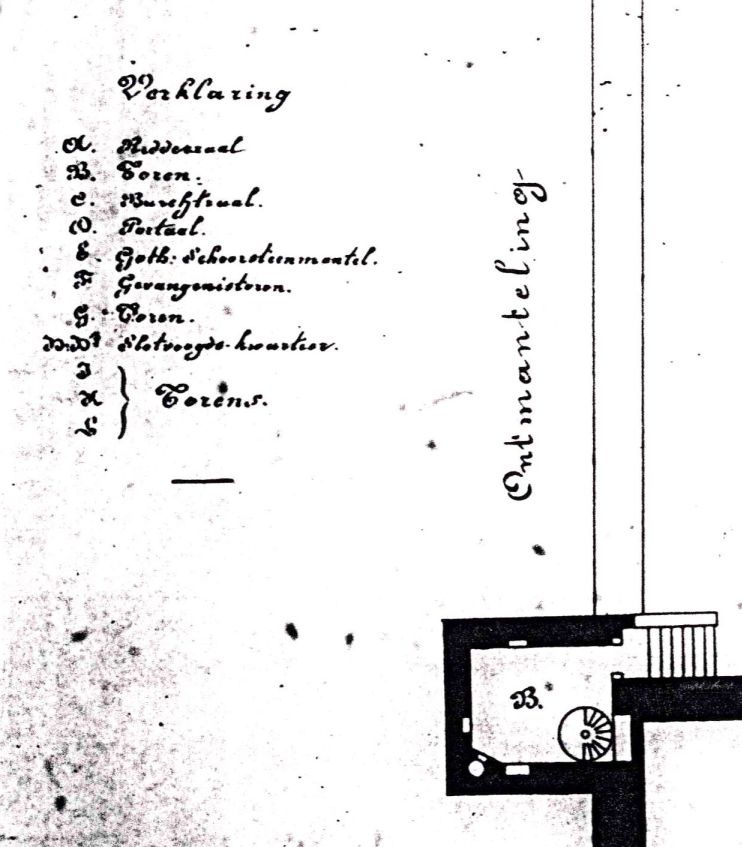 Verklaring
A. Ridderzaal
B. Toren.
C. Burchtzaal.
D. Portaal.
E. Goth: Schoorsteenmantel.
F Gevangenistoren.
G. Toren.
H.H¹ Slotvoogds-kwartier.
I
K
L
Torens.
Ontmanteling
B.